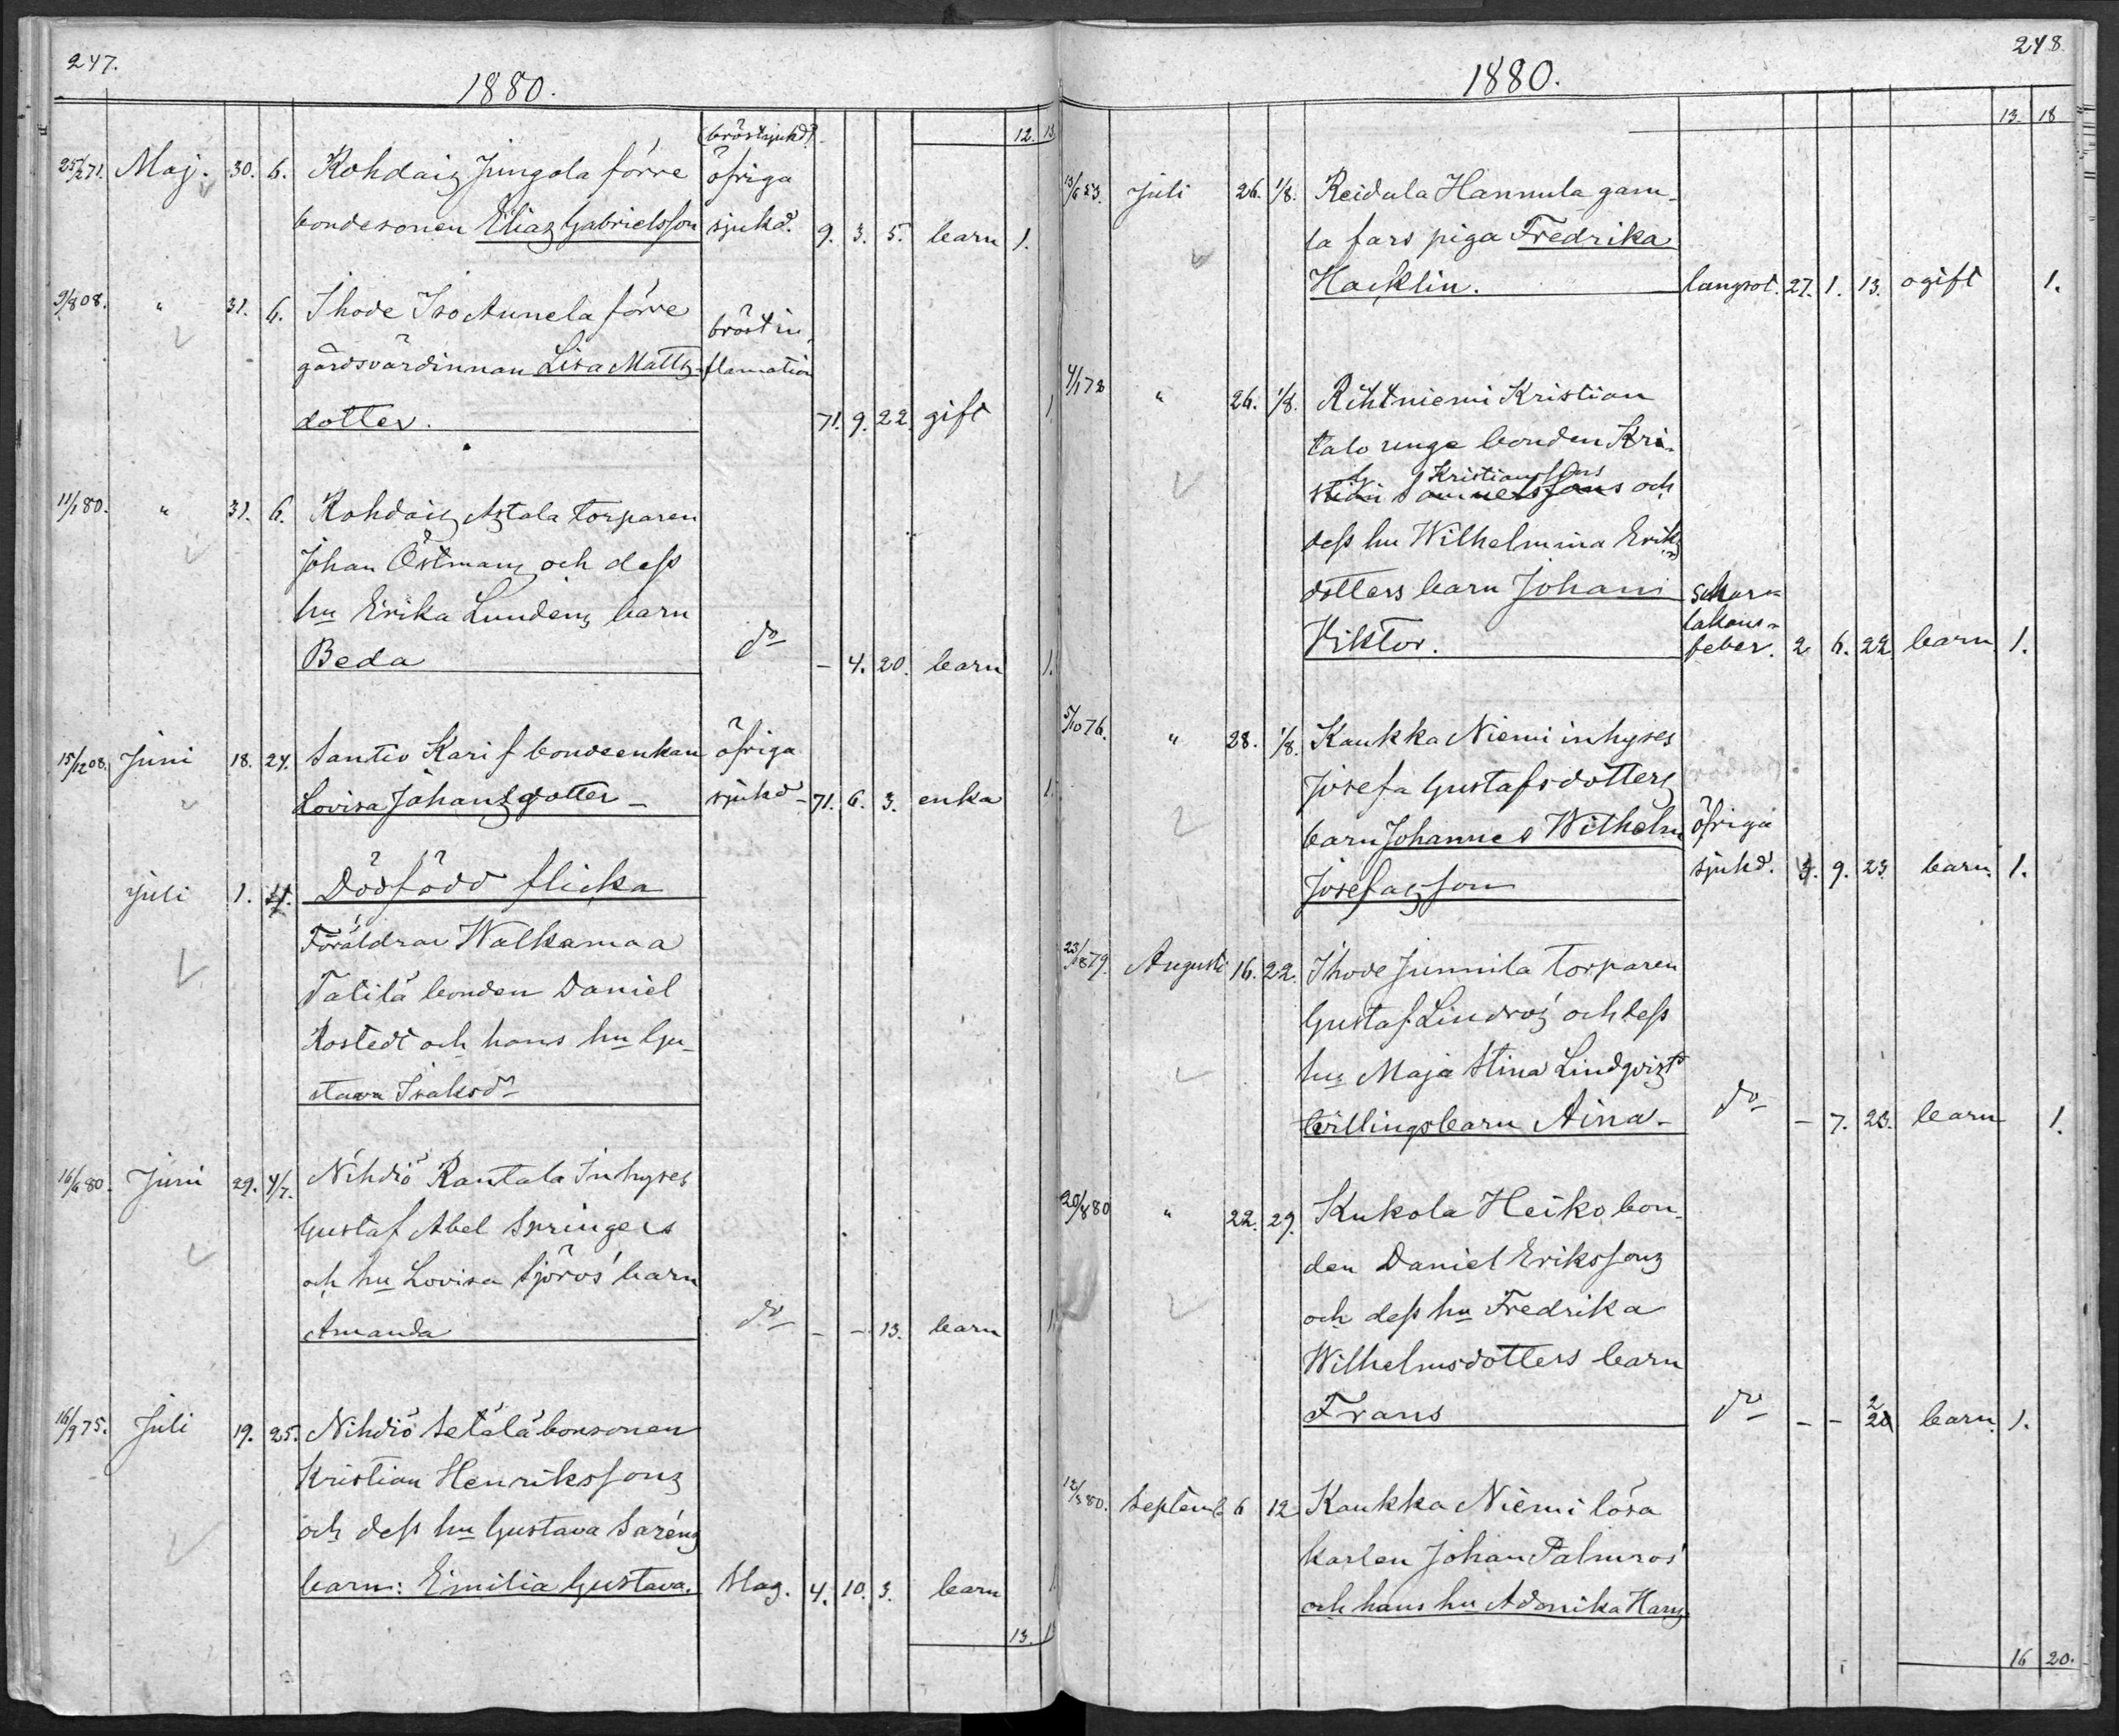 247.
1880.
12. 13
(bröstsjukd)
25/2 71. Maj. 30. 6. Kohdais Jungola förre öfriga
bondesonen Elias Gabrielsson sjukd. 9. 3. 5. barn 1.
9/8 08. " 31. 6. Ihode Iso Annela förre bröstin
gårdsvärdinnan Lisa Matts- flamation
dotter. 71. 9. 22. gift 1
11/1 80. " 31. 6. Kohdais Astala torparen
Johan Östmans och dess
hu Erika Lundens barn
Beda do - 4. 20. barn 1.
15/12 08. Juni 18. 24. Santio Karif bondeenkan öfriga
Lovisa Johansdotter - sjukd - 71. 6. 3. enka 1.
Juli 1. 4. Dödfödd flicka
Föräldrar Walkamaa
Talilä bonden Daniel
Rostedt och hans hu Gu-
stava Isaksdr
16/6 80. Juni 29. 4/7. Nihdiö Rantala Inhyses
Gustaf Abel Springers
och hu Lovisa Sjöros' barn
Amanda do - - 13. barn 1.
16/9 75. Juli 19. 25. Nihdiö Setälä bonsonen
Kristian Henrikssons
och dess hu Gustava Saréns
barn: Emilia Gustava. Slag. 4. 10. 3. barn 1
13. 1
248
1880.
13. 18
13/6 53. Juli 26. 1/8. Reidula Hannula gam-
la fars piga Fredrika
Hacklin. lungsot. 27. 1. 13. ogift 1.
4/1 78 " 26. 1/8. Rihtniemi Kristian
talo unge bonden Kri-
Kristianssons
och
dess hu Wilhelmina Eriks
dotters barn Johan skar-
lakans-
Viktor. feber. 2 6. 22. barn 1.
5/10 76. " 28. 1/8. Kaukka Niemi inhyses
Josefa Gustafsdotters
barn Johannes Wilhelm öfriga
Josefasson sjukd. 3. 9. 23. barn. 1.
23/18 79. Augusti 16. 22. Ihode Junnila torparen
Gustaf Lindros' och dess
hu Maja Stina Lindqvists
tvillingsbarn Aina - do - 7. 23. barn 1.
20/8 80 " 22. 29. Kukola Heiko bon-
den Daniel Erikssons
och dess hu Fredrika
Wilhelmsdotters barn
Frans do - - 2 barn. 1.
12/8 80. Septemb 6 12 Kaukka Niemi lösa
karlen Johan Palmros'
och hans hu Adonika Hans
16 20.